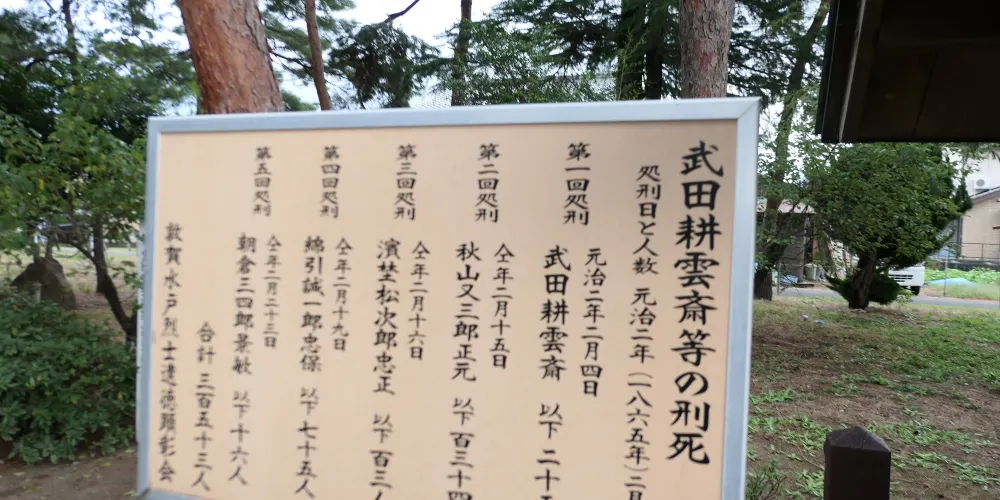 武田耕雲斎等の刑死
処刑日と人数 元治二年（一八六五年）二月
第一回処刑
元治二年二月四日
武田耕雲斎 以下 二十
第二回処刑
仝年二月十五日
秋山又三郎正元 以下 百三十四
第三回処刑
仝年二月十六日
濱埜松次郎忠正 以下 百三人
第四回処刑
仝年二月十九日
綿引誠一郎忠保 以下 七十五人
第五回処刑
仝年二月二十三日
朝倉三四郎景敏 以下 十六人
合計 三百五十三人
敦賀水戸烈士遺徳顕彰会